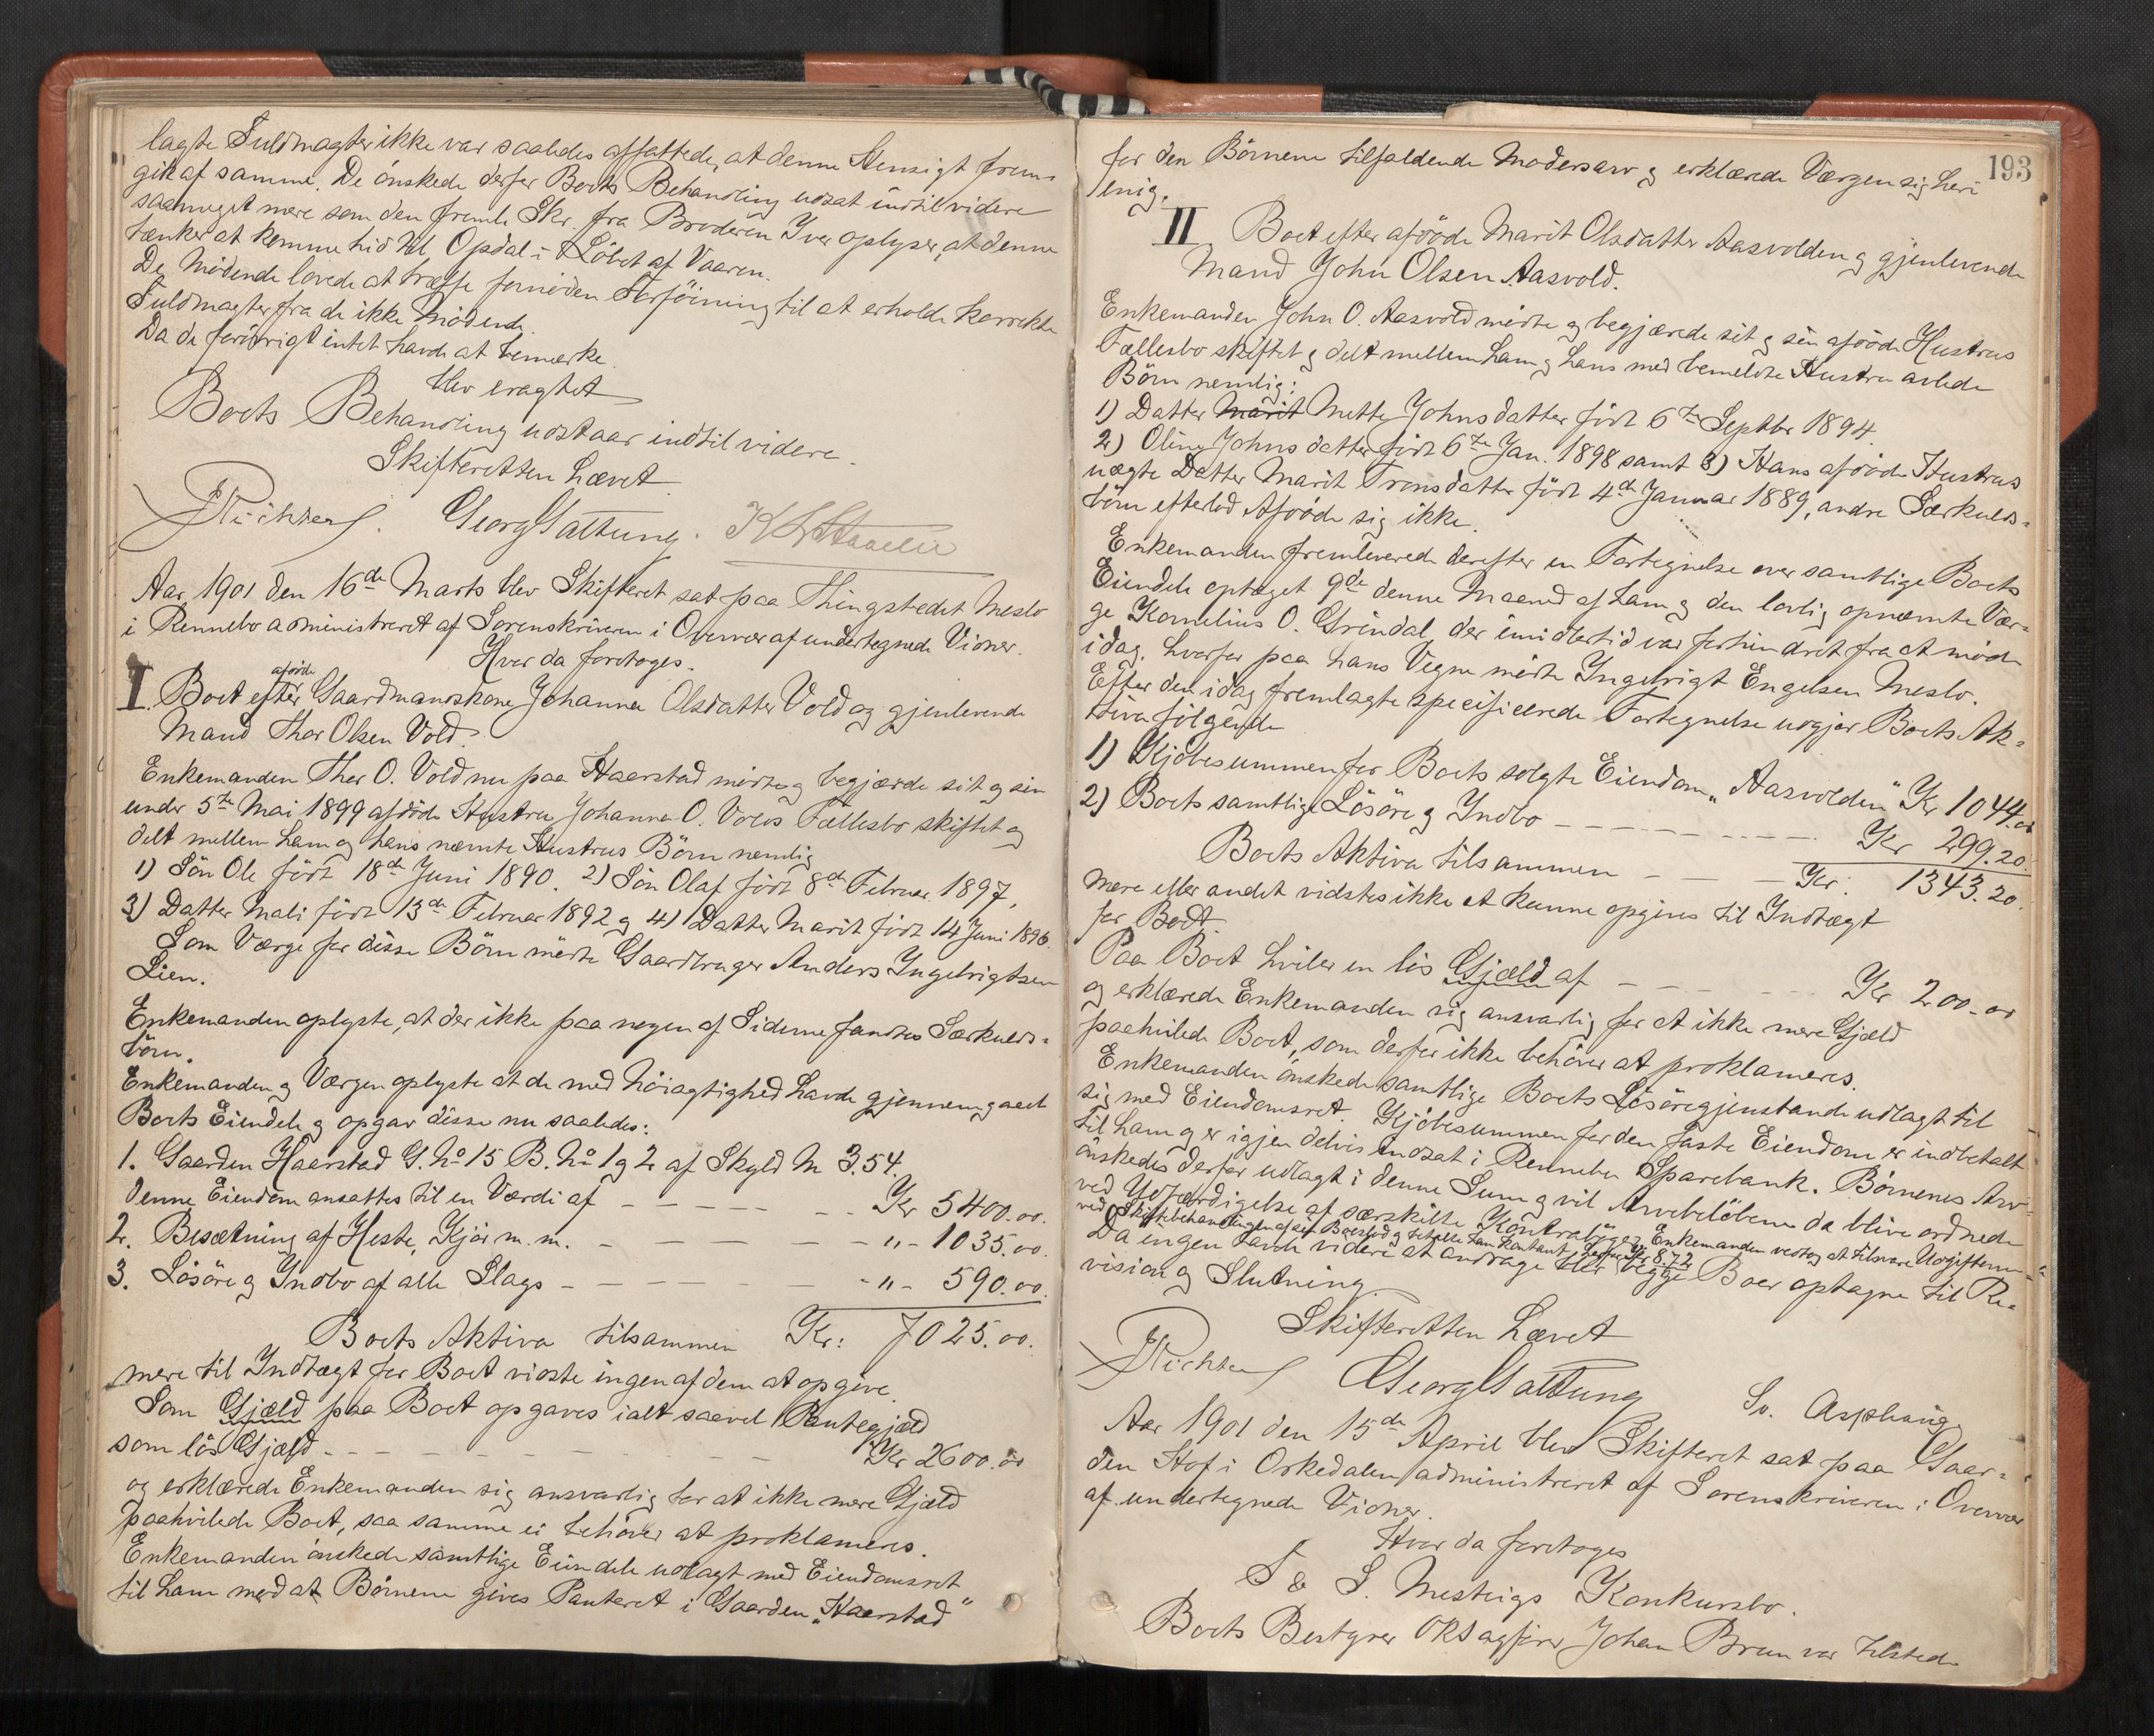 lagte Fuldmagter ikke var saaledes affattede, at denne Hensigt frem-
gik af samme. De ønskede derfor Boets Behandling udsat indtil videre
saameget mere som den freml. Skr. fra Broderen Iver oplyser, at denne
tænker at komme hid til Opdal i Løbet af Vaaren.
De Mødende lovede at træffe fornøden Forføining til at erholde korrekte
Fuldmagter fra de ikke Mødende.
Da de forøvrigt intet havde at bemærke
blev eragtet
Boets Behandling udstaar indtil videre.
Skifteretten hævet
Richter. Georg Sattung.
Aar 1901 den 16de Marts blev Skifteret sat paa Thingstedet Meslo
i Rennebo administreret af Sorenskriveren i Overvær af undertegnede Vidner.
Hvor da foretoges.
I. Boet efter afdøde Gaardmandskone Johanna Olsdatter Vold og gjenlevende
Mand Thor Olsen Vold.
Enkemanden Thor O. Vold nu paa Haarstad mødte og begjærede sit og sin
under 5te Mai 1899 afdøde Hustru Johanna O. Volds Fællesbo skiftet og
delt mellem ham og hans nævnte Hustrus Børn nemlig
1) Søn Ole født 18de Juni 1890. 2) Søn Olaf født 8de Februar 1897,
3) Datter Mali født 13de Februar 1892 og 4) Datter Marit født 14 Juni 1896.
Som Værge for disse Børn mødte Gaardbruger Anders Ingebrigtsen
Lien.
Enkemanden oplyste, at der ikke paa nogen af Siderne fandtes Særkulds-
børn.
Enkemanden og Værgen oplyste at de med Nøiagtighed havde gjennemgaaet
Boets Eiendele og opgav disse nu saaledes:
1. Gaarden Haarstad G. No 15 B. No 1 og 2 af Skyld M 3.54.
denne Eiendom ansattes til en Værdi af - - - - - - Kr 5400.00.
2. Besætning af Heste, Kjør m. m. - - - - - - " - 1035.00.
3. Løsøre og Indbo af alle Slags - - - - - " - 590.00.
Boets Aktiva tilsammen Kr: 7025.00.
mere til Indtægt for Boet vidste ingen af dem at opgive.
Som Gjæld paa Boet opgaves ialt saavel Pantegjæld
som løs Gjæld - - - - - - - - Kr 2600.00
og erklærede Enkemanden sig ansvarlig for at ikke mere Gjæld
paahvilede Boet, saa samme ei behøver at proklameres.
Enkemanden ønskede samtlige Eiendele udlagt med Eiendomsret
til ham mod at Børnene gives Panteret i Gaarden "Haarstad"
193
for den Børnene tilfaldende Modersarv og erklærede Værgen sig heri
enig.
II Boet efter afdøde Marit Olsdatter Aasvolden og gjenlevende
Mand John Olsen Aasvold.
Enkemanden John O. Aasvold mødte og begjærede sit og sin afdøde Hustrus
Fællesbo skiftet og delt mellem ham og hans med bemeldte Hustru avlede
Børn nemlig:
1) Datter Marit Mette Johnsdatter født 6te Septbr 1894.
2) Oline Johnsdatter født 6te Jan. 1898 samt 3) Hans afdøde Hustrus
uægte Datter Marit Tronsdatter født 4de Januar 1889, andre Særkulds-
børn efterlod Afdøde sig ikke.
Enkemanden fremleverede derefter en Fortegnelse over samtlige Boets
Eiendele optaget 9de denne Maaned af ham og den lovlig opnævnte Vær-
ge Kornelius O. Grindal, der imidlertid var forhindret fra at møde
idag, hvorfor paa hans Vegne mødte Ingebrigt Engelsen Meslo.
Efter den idag fremlagte specificerede Fortegnelse udgjør Boets Ak-
tiva følgende
1) Kjøbesummen for Boets solgte Eiendom "Aasvolden" Kr 1044.00
2) Boets samtlige Løsøre og Indbo - - - - - - - Kr 299.20.
Boets Aktiva tilsammen - - - Kr: 1343.20.
mere eller andet vidstes ikke at kunne opgives til Indtægt
for Boet.
Paa Boet hviler en løs Gjæld af - - - - - Kr 200.00
og erklærede Enkemanden sig ansvarlig for at ikke mere Gjæld
paahvilede Boet, som derfor ikke behøver at proklameres.
Enkemanden ønskede samtlige Boets Løsøregjenstande udlagt til
sig med Eiendomsret. Kjøbesummen for den faste Eiendom er indbetalt
til ham og er igjen delvis indsat i Rennebu Sparebank. Børnenes Arv
ønskedes derfor udlagt i denne Sum og vil Arvebeløbene da blive ordnede
ved Udfærdigelse af særskilte Kontrabøger. Enkemanden vedtog at tilsvare Udgifterne
ved Skiftebehandlingen af sin Boeslod og betalte ham kontant herfor Kr 8.72
Da ingen havde videre at andrage blev begge Boer optagne til Re-
vision og Slutning.
Skifteretten hævet
Richter Georg Sattung Sv. Asphaug
Aar 1901 den 15de April blev Skifteret sat paa Gaar-
den Hof i Orkedalen administreret af Sorenskriveren i Overvær
af undertegnede Vidner.
Hvor da foretoges
Konkursbo.
Boets Bestyrer ORSagfører Johan Bruun var tilstede